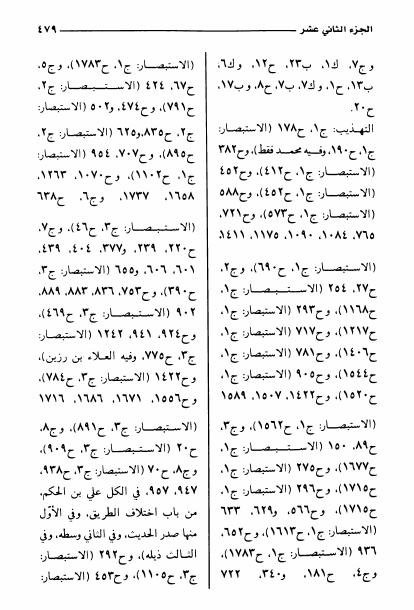 الجزء الثاني عشر
٤٧٩
وج٧، ك١، ب٢٣، ح١٢، وك٦،
ب١٣، ح١، وك٧، ب٧، ح٨، وب١٧،
ح٢٠.
التهذيب: ج١، ح١٧٨ (الاستبصار:
ج١، ح١٩٠، وفيه محمد فقط)، وح٣٨٢
(الاستبصار: ج١، ح٤١٢)، وح٤٥٢
(الاستبصار: ج١، ح٤٥٢)، وح٥٨٨
(الاستبصار: ج١، ح٥٧٣)، وح٧٢١،
٧٦٥، ١٠٨٤، ١٠٩٠، ١١٧٥، ١٤١١
(الاستبصار: ج١، ح٦٩٠)، وج٢،
ح٢٧، ٢٥٤ (الاستبصار: ج١،
ح١١٦٨)، وح٢٩٣ (الاستبصار: ج١،
ح١٢١٧)، وح٧١٧ (الاستبصار: ج١،
ح١٤٠٦)، وح٧٨١ (الاستبصار: ج١،
ح١٥٤٤)، وح٩٠٥ (الاستبصار: ج١،
ح١٥٢٠)، وح١٤٢٢، ١٥٠٧، ١٥٨٩
(الاستبصار: ج١، ح١٥٦٢)، وج٣،
ح٨٩، ١٥٠ (الاستبصار: ج١،
ح١٦٧٧)، وح٢٧٥ (الاستبصار: ج١،
ح١٧١٥)، وح٢٩٦ (الاستبصار: ج١،
ح١٧١٥)، وح٥٦٦، و٦٢٩، ٦٣٣
(الاستبصار: ج١، ح١٦١٣)، وح٦٥٢،
٩٣٦ (الاستبصار: ج١، ح١٧٨٣)،
وج٤، ح١٨١، و٣٤٠، ٧٢٢
(الاستبصار: ج١، ح١٧٨٣)، وج٥،
ح٦٧، ٤٢٤ (الاستبصار: ج٢،
ح٧٩١)، وح٤٧٤، و٥٠٢ (الاستبصار:
ج٢، ح٨٣٥، و٦٢٥ (الاستبصار: ج٢،
ح٨٩٥)، وح٧٠٧، ٩٥٤ (الاستبصار:
ج١، ح١١٠٢)، وح١٠٧٠، ١٢٦٣،
١٦٥٨، ١٧٣٧، وج٦، ح٦٣٨
(الاستبصار: ج٣، ح٤٦)، وج٧،
ح٢٢٠، ٢٣٩، و٣٧٧، ٤٠٤، ٤٣٩،
٦٠١، ٦٠٦، و٦٥٥ (الاستبصار: ج٣،
ح٣٩٠)، وح٧٥٣، ٨٣٦، ٨٨٣، ٨٨٩،
٩٠٢ (الاستبصار: ج٣، ح٤٦٩)،
وح٩٢٤، ٩٤١، ١٢٤٢ (الاستبصار:
ج٣، ح٧٧٥، وفيه العلاء بن رزين)،
وح١٤٢٢ (الاستبصار: ج٣، ح٧٨٤)،
وح١٥٥٦، ١٦٧١، ١٦٨٦، ١٧١٦
(الاستبصار: ج٣، ح٨٩١)، وج٨،
ح٢٠ (الاستبصار: ج٣، ح٩٠٩)،
وج٨، ح٧٠ (الاستبصار: ج٣، ح٩٣٨،
٩٤٧، ٩٥٧، في الكل علي بن الحكم،
من باب اختلاف الطريق، وفي الأوّل
منها صدر الحديث، وفي الثاني وسطه، وفي
الثالث ذيله)، وح٢٩٢ (الاستبصار:
ج٣، ح١١٠٥)، وح٤٥٣ (الاستبصار: